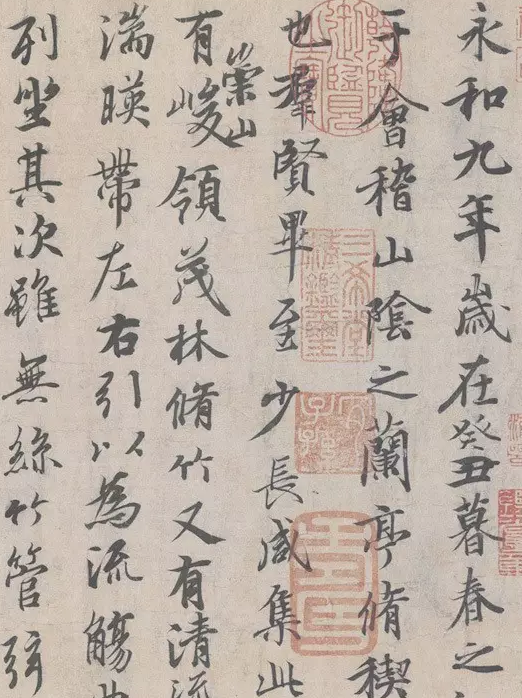 永和九年歲在癸丑暮春之
于會稽山陰之蘭亭脩禊
也羣賢畢至少長咸集此
有崇山峻領茂林脩竹又有清流
湍暎帶左右引以為流觴曲
列坐其次雖無絲竹管弦
三希堂精鑑璽
宜子孫